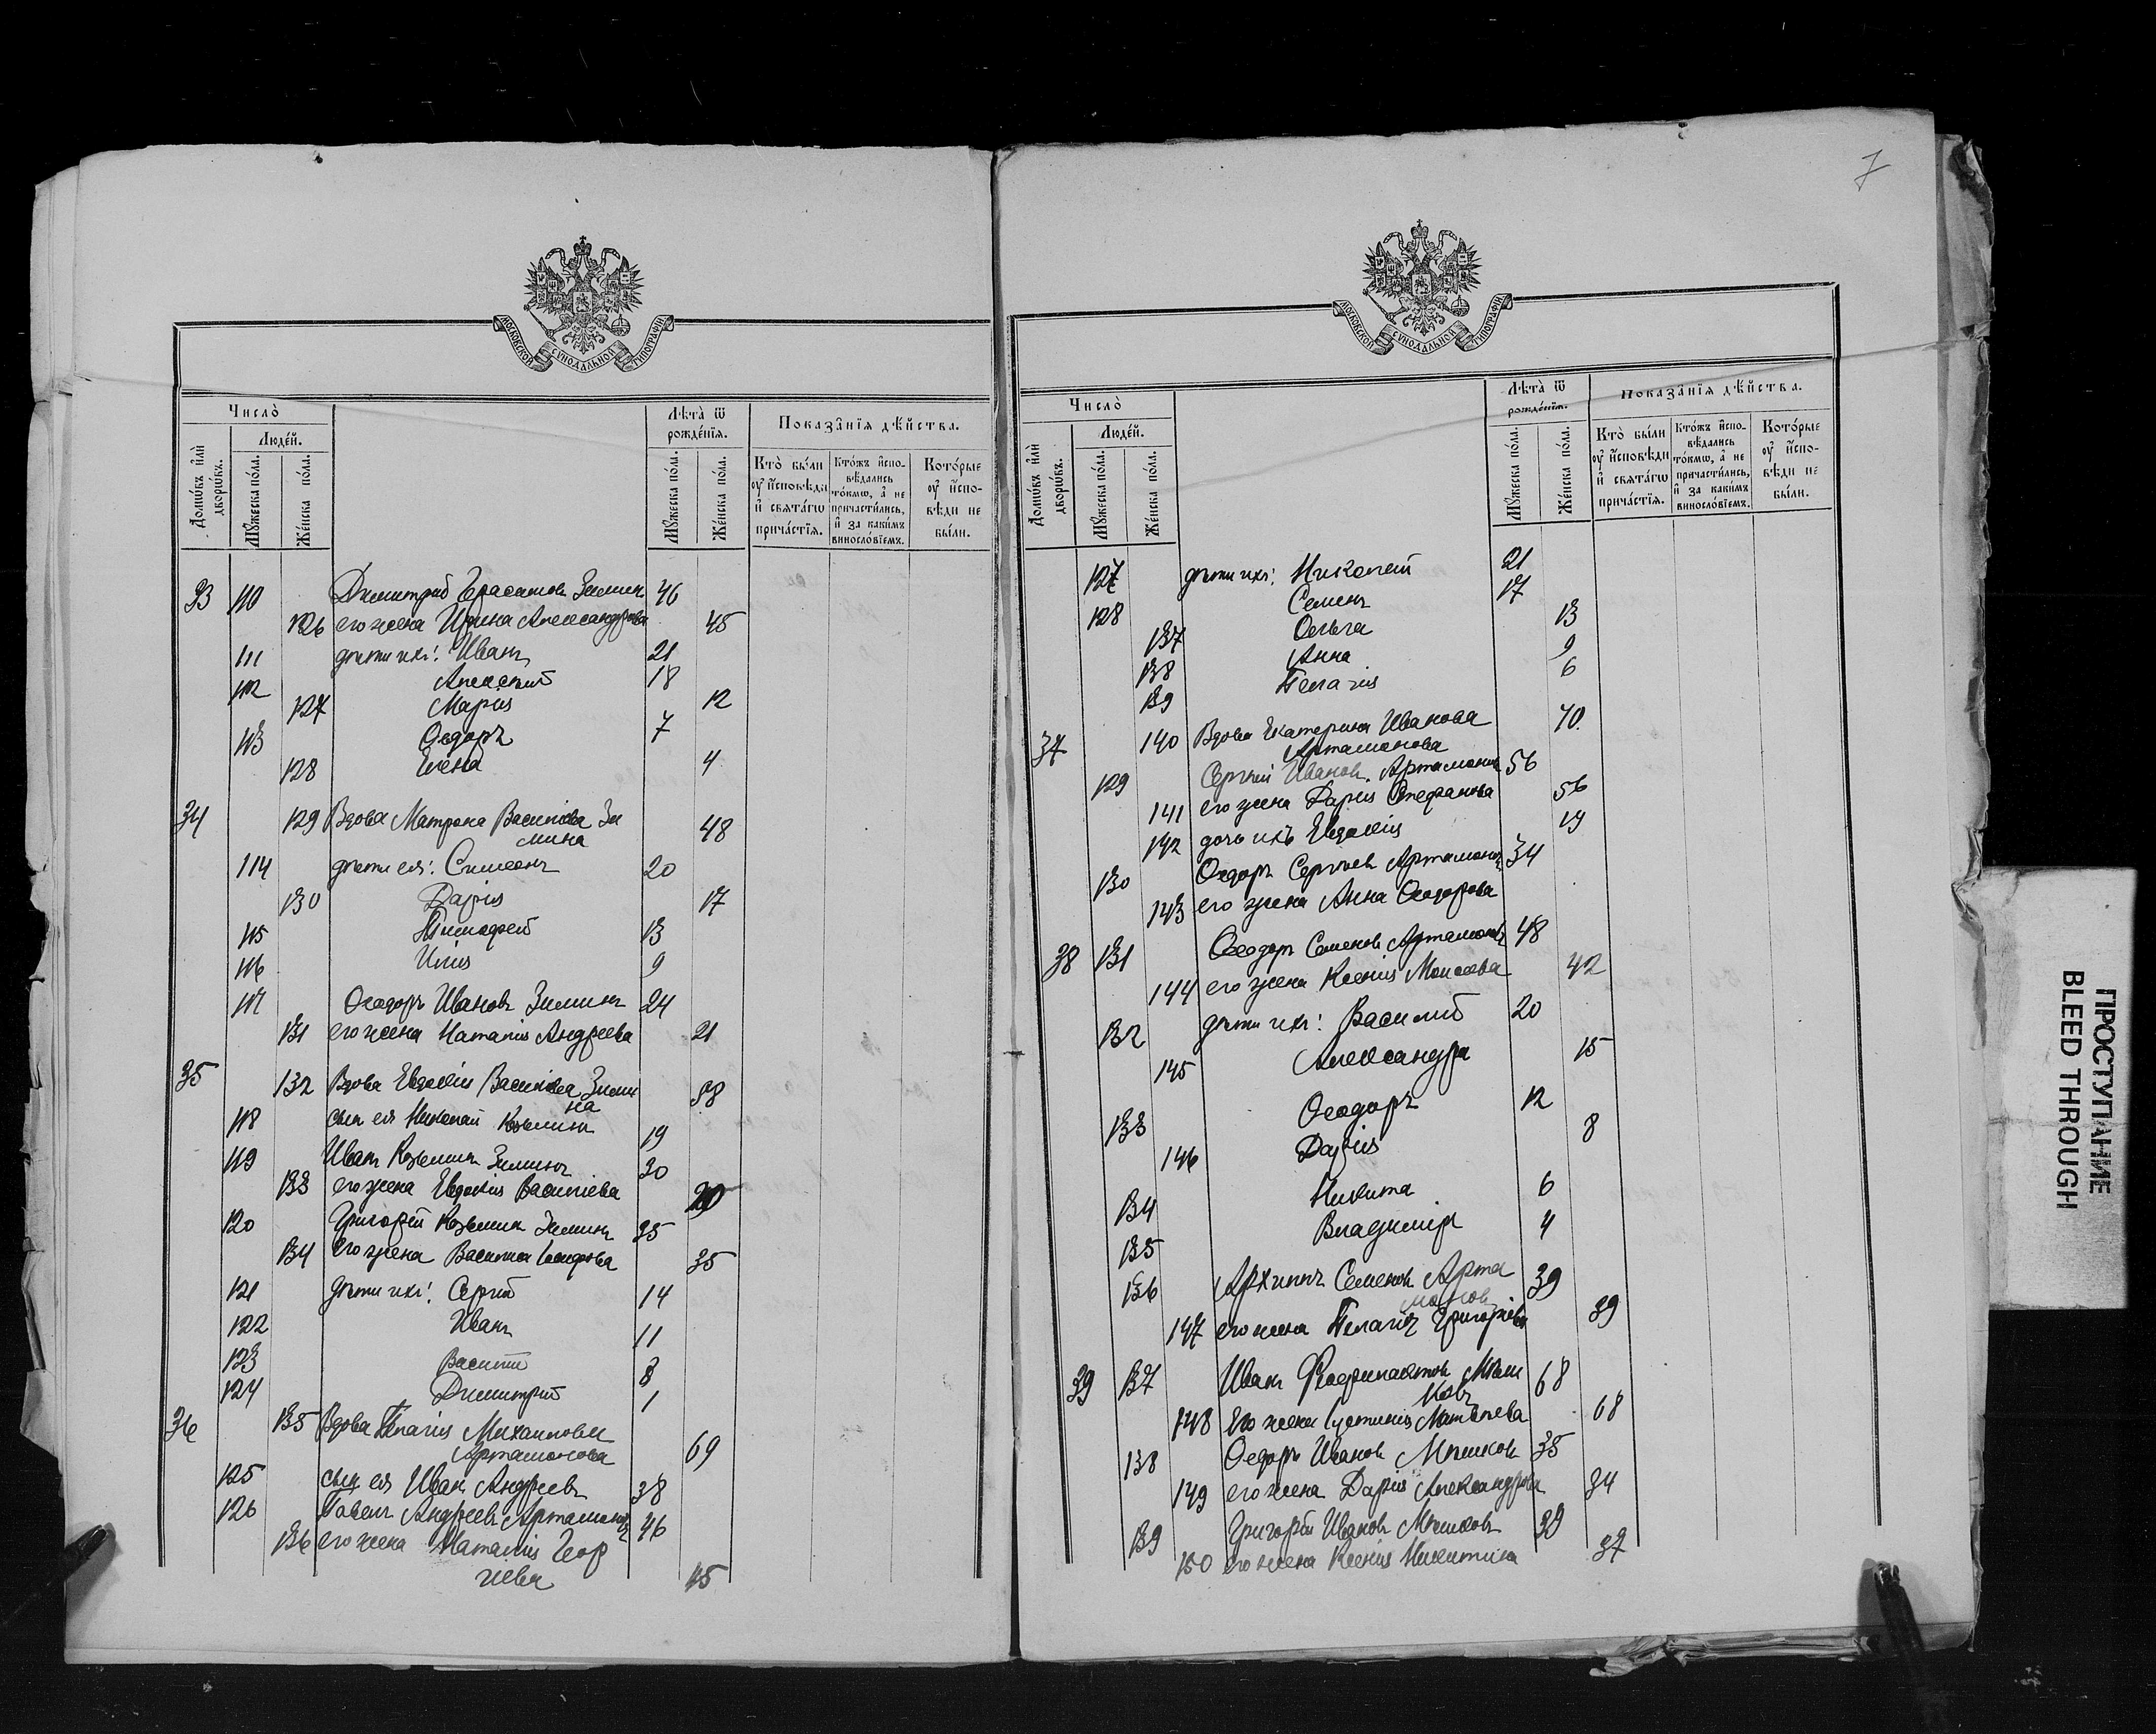 7
МОСКОВСКОЙ СѴНОДАЛЬНОЙ ТИПОГРАФІИ.
Число̀
Люде́й.
Домѡ́въ и҆лѝ дворѡ́въ.
Мꙋ́жеска по́ла.
Же́нска по́ла.
Лѣ́та ѿ рожде́нїя.
Мꙋ́жеска по́ла.
Же́нска по́ла.
Показа̑нїя дѣ́йства.
Кто̀ бы́ли оу҆ и҆́сповѣди и҆ свѧта́гѡ прича́стїѧ.
Кто́жъ и҆спо-вѣ́дались то́кмѡ, а҆ не причасти́лись, и҆ за каки́мъ винословїемъ.
Кото́рые оу҆ и҆́спо-вѣди не бы́ли.
33 110 Димитрій Герасимовъ Зиминъ 46
126 его жена Ирина Александрова 45
111 дѣти ихъ: Иванъ 21
112 Алексѣй 18
127 Марія 12
113 Ѳедоръ 7
128 Елена 4
34 129 Вдова Матрона Василіева Зи
мина 48
114 дѣти ея: Симеонъ 20
130 Дарія 17
115 Тимофей 13
116 Илія 9
117 Ѳеодоръ Ивановъ Зиминъ 24
131 его жена Наталія Андреева 21
35 132 Вдова Евдокія Василіева Зими
на 58
118 сынъ ея Николай Козьминъ 19
119 Иванъ Козьминъ Зиминъ 30
133 его жена Евдокія Василіева
120 Григорій Козьминъ Зиминъ 35
134 его жена Васимія 35
121 дѣти ихъ: Сергій 14
122 Иванъ 11
123 Василій 8
124 Димитрій 1
36 135 Вдова Пелагія Михаилова
Артамонова 69
125 сынъ ея Иванъ Андреевъ 38
126 Павелъ Андреевъ Артамоновъ 46
136 его жена Наталія Геор
гіева 45
Число̀
Люде́й.
Домѡ́въ и҆лѝ дворѡ́въ.
Мꙋ́жеска по́ла.
Же́нска по́ла.
Лѣ́та ѿ рожде́нїя.
Мꙋ́жеска по́ла.
Же́нска по́ла.
Показа̑нїя дѣ́йства.
Кто̀ бы́ли оу҆ и҆́сповѣди и҆ свѧта́гѡ прича́стїѧ.
Кто́жъ и҆спо-вѣ́дались то́кмѡ, а҆ не причасти́лись, и҆ за каки́мъ винословїемъ.
Кото́рые оу҆ и҆́спо-вѣди не бы́ли.
МОСКОВСКОЙ СѴНОДАЛЬНОЙ ТИПОГРАФІИ.
127 дѣти ихъ: Николай 21
128 Семенъ 17
137 Ольга 13
138 Анна 9
139 Пелагія 6
37 140 Вдова Екатерина Иванова 70.
Артамонова
129 Сергѣй Ивановъ Артамоновъ 56
141 его жена Дарія Стефанова 56
142 дочь ихъ Евдокія 19
130 Ѳедоръ Сергѣевъ Артамоновъ 34
143 его жена Анна Ѳеодорова
38 131 Ѳеодоръ Семеновъ Артамоновъ 48
144 его жена Ксенія Моисеева 42
132 дѣти ихъ: Василій 20
145 Александра 15
133 Ѳеодоръ 12
146 Дарія 8
134 Никита 6
135 Владиміръ 4
136 Архипъ Семеновъ Арта
моновъ 39
147 его жена Пелагія Григоріева 39
39 137 Иванъ Феофилактовъ Мѣш
ковъ 68
148 Его жена Іустинія Матвѣева 68
138 Ѳедоръ Ивановъ Мѣшковъ 35
149 его жена Дарія Александрова 34
139 Григорій Ивановъ Мѣшковъ 39
150 его жена Ксенія Никитина 37
ПРОСТУПАНИЕ
BLEED THROUGH